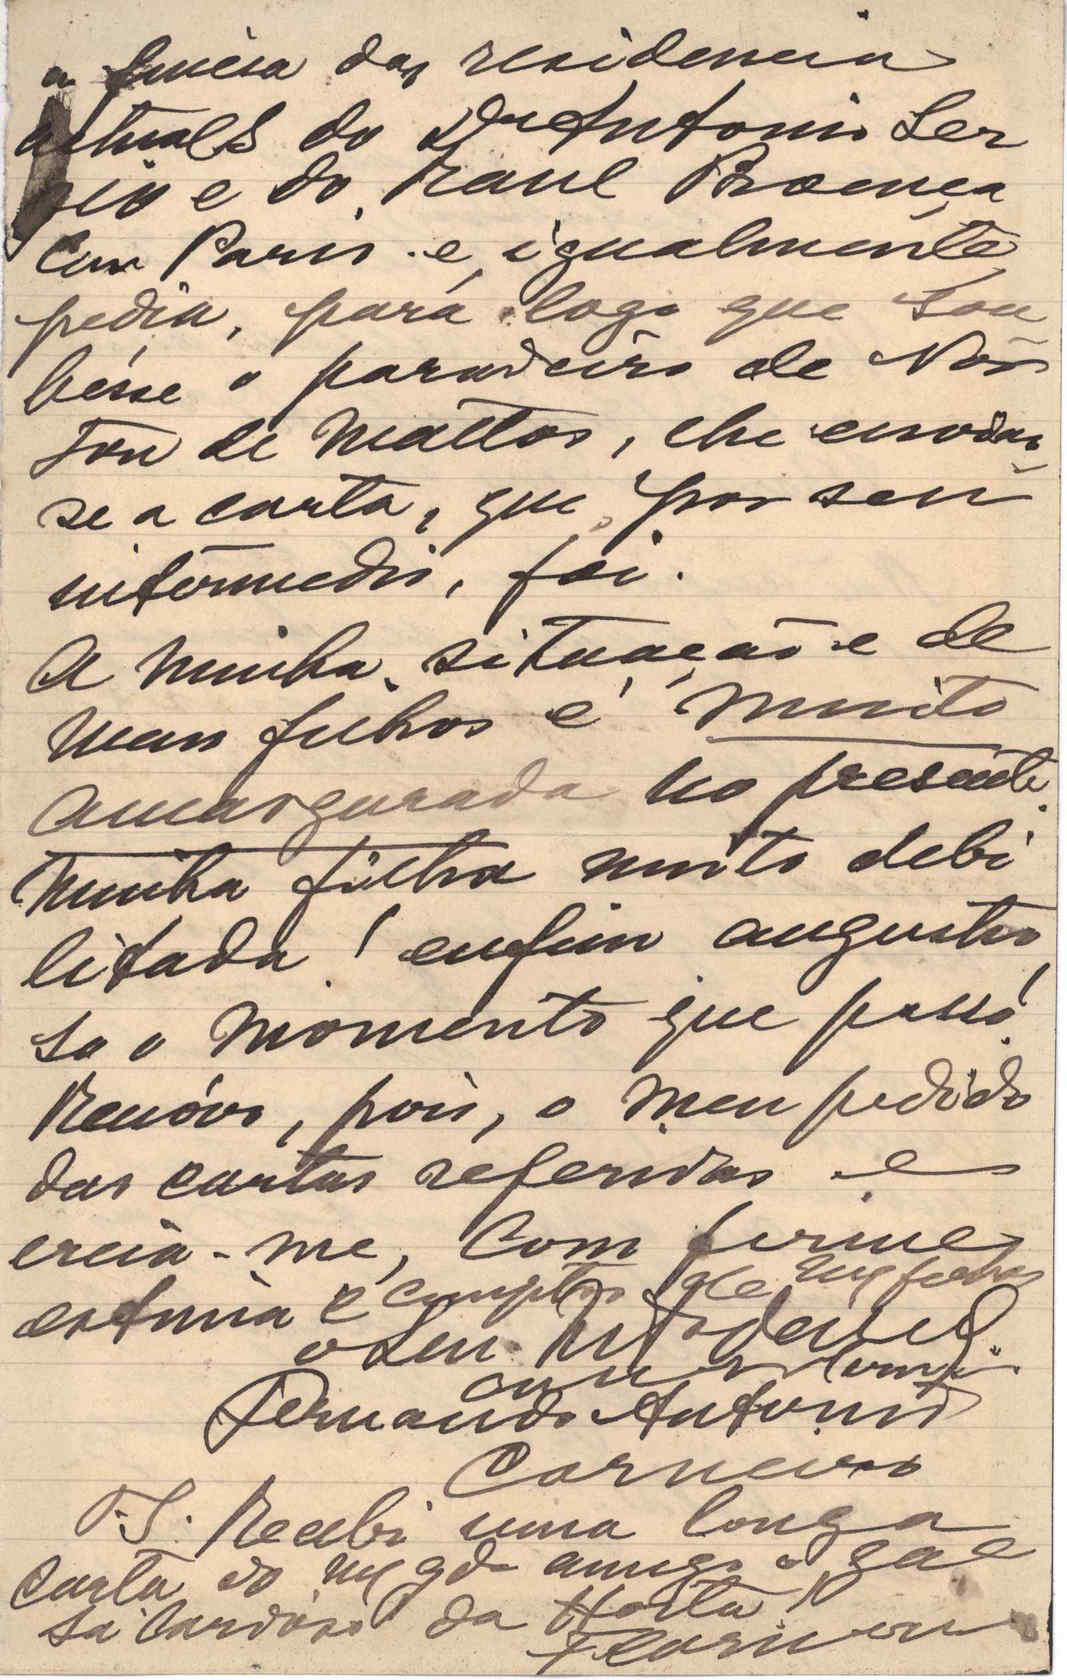 a fineza das residencia
actuals do Dr Antonio Ser
gio e do Raul Proença
em Paris e, igualmente,
pedia, para logo que sou
bésse o paradeiro de Nór
ton de Mattos, lhe envias
se a carta, que, por seu
intermedio, foi.
A minha situação e de
meus filhos é muito
amargurada no presente.
Minha filha muito debi
litada! enfim angustio
so o momento que passo.
Renóvo, pois, o meu pedido
das cartas referidas e
creia-me, com firme
estima e
o Seu
Fernando Antonio
Carneiro
P.S. Recebi uma longa
carta do amigo
Sá Cardoso da Horta!